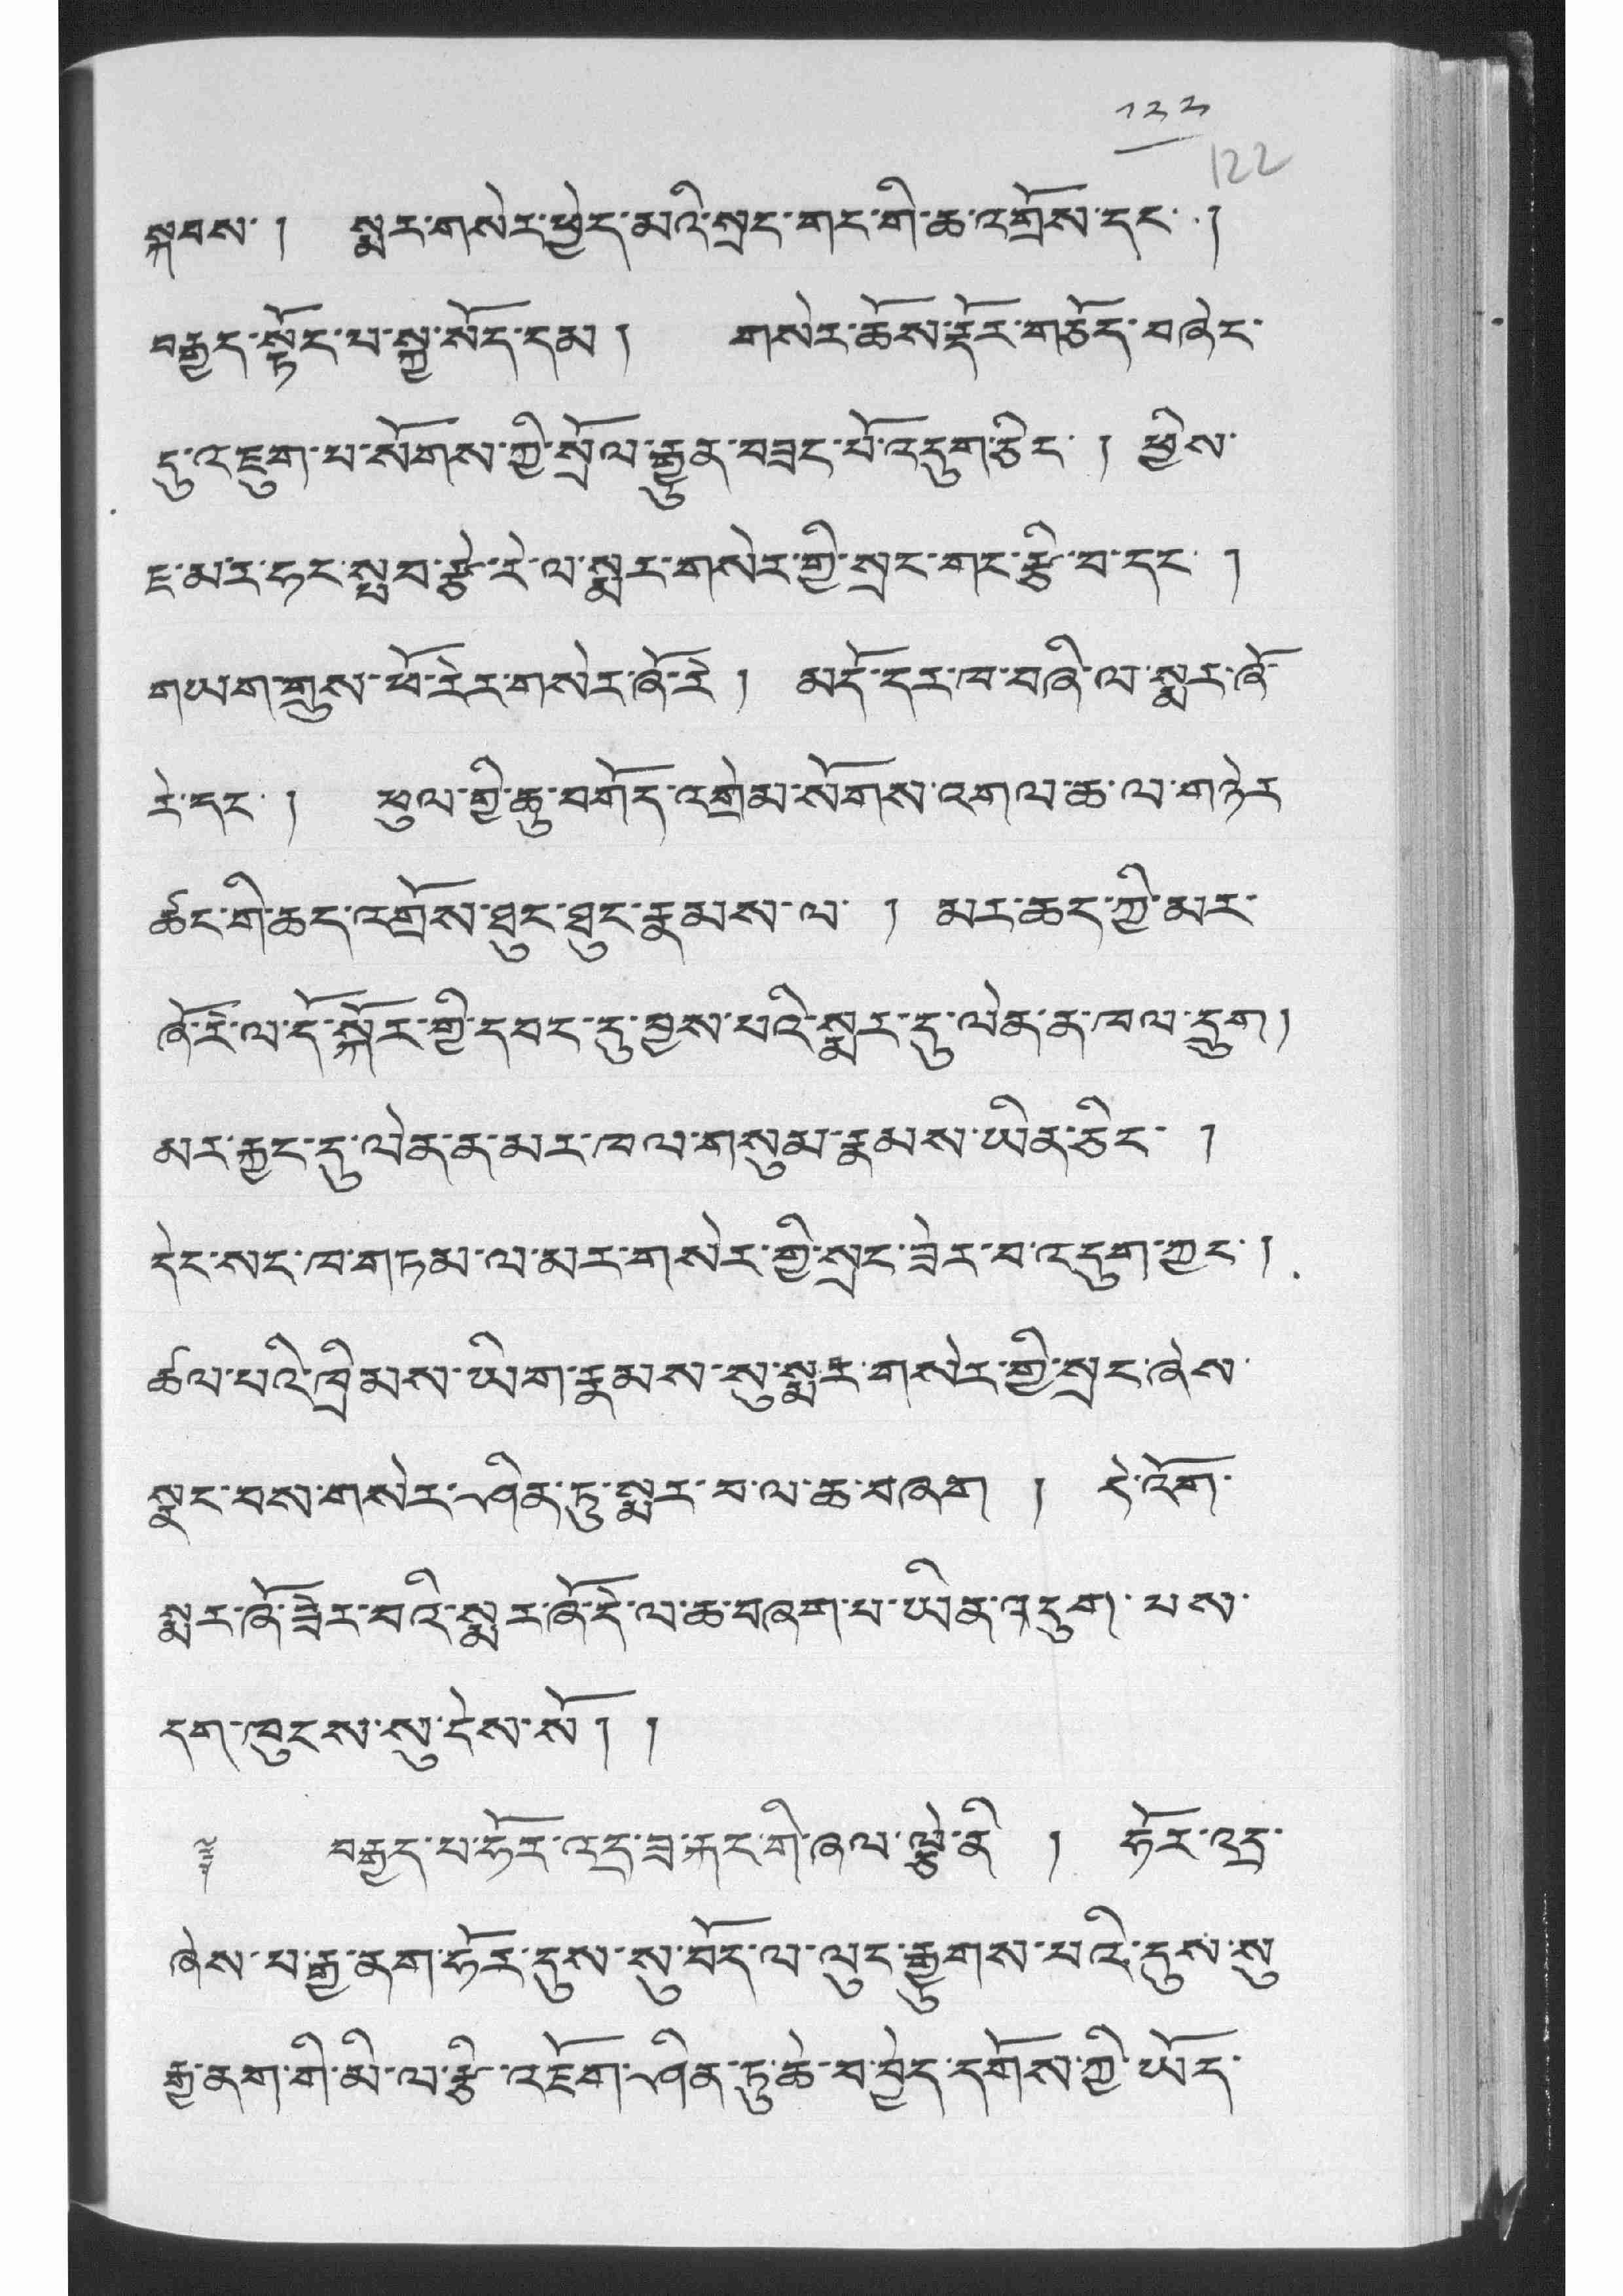 ༡༢༢
122
སྐབས། སྨར་གསེར་ཕྱེད་མའི་སྲང་གང་གི་ཆ་འགྲོས་དང་།
བརྒྱད་སྟོང་པ་སྐྱ་སོད་དམ། གསེར་ཆོས་རྡོར་གཅོད་བཞེང་
དུ་འཇུག་པ་སོགས་ཀྱི་སྲོལ་རྒྱུན་བཟང་པོ་འདུག་ཅིང་། ཕྱིས་
ཇ་མར་ཧང་སྤབ་རྩེ་རེ་ལ་སྨར་གསེར་གྱི་སྲང་གང་རྩི་བ་དང་།
གཡག་གྲུས་ཕོ་རེར་གསེར་ཞོ་རེ། མདོ་དར་ཁ་བཞི་ལ་སྨར་ཞོ་
རེ་དང་། ཕུལ་གྱི་ཆུ་བགོད་འགྲེམ་སོགས་འགལ་ཆ་ལ་གཉེར་
ཚང་གི་ཆད་འགྲོས་ཐུང་ཐུང་རྣམས་ལ། མར་ཆང་ཀྱི་མར་
ཞོ་རེ་ལ་དོ་སྐོར་གྱི་དབང་དུ་བྱས་པའི་སྨར་དུ་ལེན་ན་ཁལ་དྲུག།
མར་རྐྱང་དུ་ལེན་ན་མར་ཁལ་གསུམ་རྣམས་ཡིན་ཅིང་།
དེང་སང་ཁ་གཏམ་ལ་མར་གསེར་གྱི་སྲང་ཟེར་བ་འདུག་ཀྱང་།
ཚལ་པའི་ཁྲིམས་ཡིག་རྣམས་སུ་སྨར་གསེར་གྱི་སྲང་ཞེས་
སྣང་བས་གསེར་ཤིན་ཏུ་སྨར་བ་ལ་ཆ་བཞག། དེ་འོག་
སྨར་ཞོ་ཟེར་བའི་སྨར་ཞོ་དེ་ལ་ཆ་བཞག་པ་ཡིན་འདུག་པས་
དག་ཁུངས་སུ་ངེས་སོ།།
༈ བརྒྱད་པ་ཧོར་འདྲ་ཟ་རྐང་གི་ཞལ་ལྕེ་ནི། ཧོར་འདྲ་
ཞེས་པ་རྒྱ་ནག་ཧོར་དུས་སུ་བོད་ལ་ལུང་རྒྱུགས་པའི་དུས་སུ
རྒྱ་ནག་གི་མི་ལ་རྩི་འཇོག་ཤིན་ཏུ་ཆེ་བ་བྱེད་དགོས་ཀྱི་ཡོད་